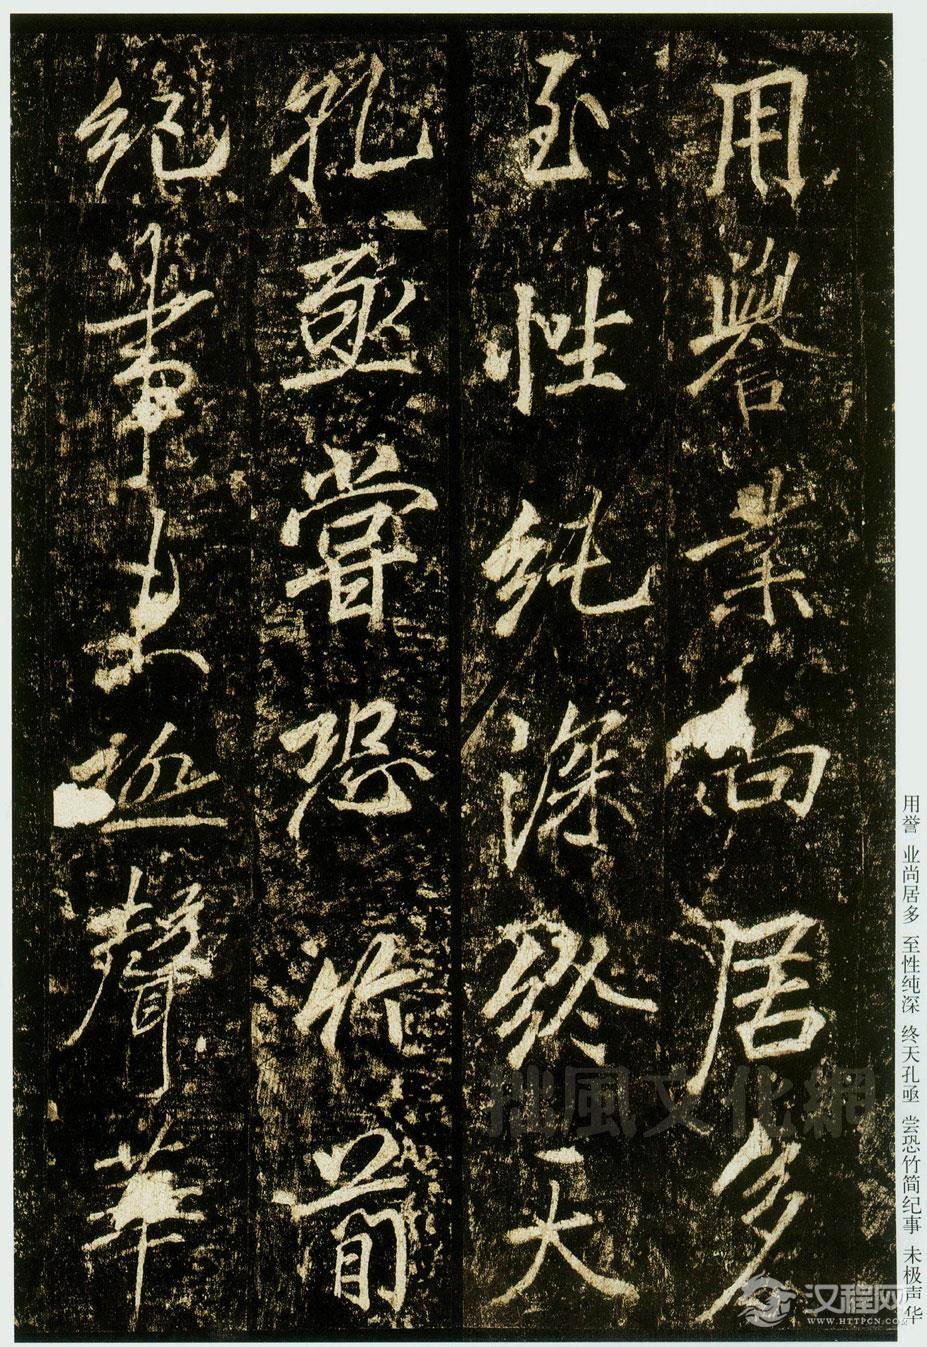 用譽業尚居多
至性純深終天
孔亟嘗恐竹簡
紀事未極聲華
用誉 业尚居多 至性纯深 终天孔亟 尝恐竹简纪事 未极声华
拙風文化網
汉程网
WWW.HTTPCN.COM